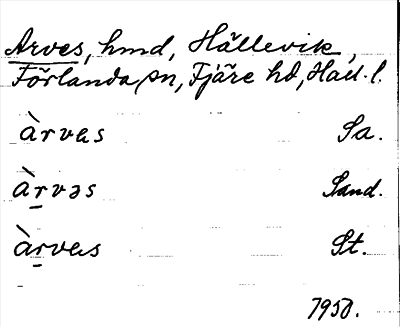 Arves, hmd, Hällevik,
Förlanda sn, Fjäre hd, Hall. l.
àrvɐs Sa.
àr̲vəs Sand.
àr̲vɐs St.
1950.